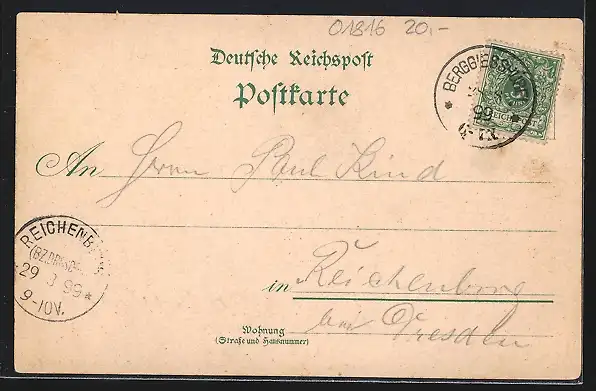 01816 20,-
Deutsche Reichspost
Postkarte
BERGGIESSHÜBEL
99
An Herrn Paul Kind
REICHENB
(BZ.DRESD
29 3 99 *
9-10V.
in Reichenberg
bei Dresden
Wohnung
(Straße und Hausnummer)